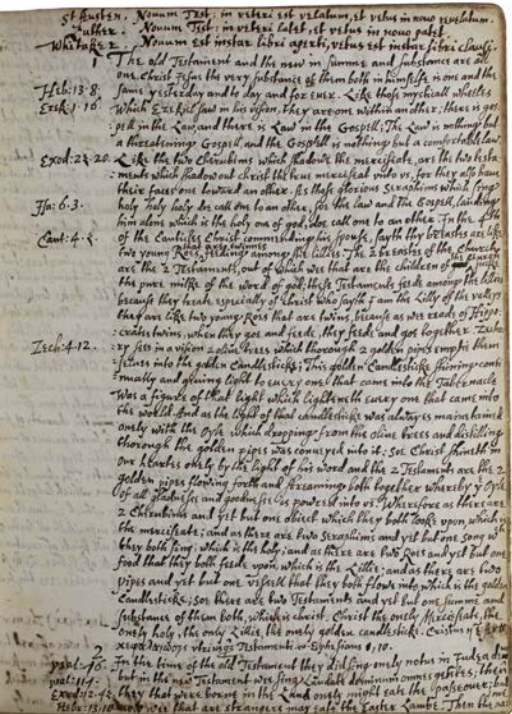 St Austen. Novum Test: in veteri est velatum, et vetus in novo revelatum.
Luther. Novum Test: in veteri latet, et vetus in novo patet.
Whitaker. Novum est instar libri aperti, vetus est instar libri clausi.
1 The old Testament and the new in summe and substance are all
one. Christ Jesus the very substance of them both in himselfe is one and the
Heb: 13.8. same yesterday and to day and for ever. Like those mysticall wheeles
Ezek: 1.16. which Ezekiel saw in his vision, they are one within another; there is gos-
:pell in the Law, and there is Law in the Gospell; The Law is nothing but
a threatening Gospell, and the Gospell is nothing but a comfortable law.
Exod: 25.20. Like the two Cherubims which shadowe the mercieseate, are the two testa-
:ments which shadow out christ the true mercieseat unto us, for they also have
their faces one toward an other. As those glorious Seraphims which sing
Isa: 6.3. holy holy holy doe call one to an other, soe the law and the Gospell, lauding
him alone which is the holy one of god, doe call one to an other. In the 4th
Cant: 4. of the Canticles Christ commending his spouse, sayth thy breastes are like
two young Roes that are twinnes feeding among the lillies. The 2 breastes of the Church
are the 2 Testaments, out of which wee that are the children of the church sucke
the pure milke of the word of god; these Testaments feede among the lillies
because they treate especially of Christ who sayth I am the Lilly of the valleys
they are like two young Roes that are twins, because as wee reade of Hippo-
:crates twins, when they goe and feede, they feede and goe together. Zecha-
Zech: 4.12. :ry sees in a vision 2 olive trees which thorough 2 golden pipes emptie them
:selves into the golden Candlesticke; This golden Candlesticke shining conti-
:nually and giving light to every one that came into the Tabernacle
was a figure of that light which lighteneth every one that came into
the world. And as the light of that candlesticke was alwayes maintained
onely with the Oyle which dropping from the olive trees and distilling
thorough the golden pipes was conveyed into it: Soe Christ shineth in
our heartes onely by the light of his word and the 2 Testaments are the 2
golden pipes flowing forth and streaming both together whereby ye Oyle
of all gladnesse and goodnesse is powred into us. Wherefore as there are
2 Cherubims and yet but one object which they both looke upon, which is
the mercieseate; and as there are two Seraphims and yet but one song wch
they both sing, which is the holy; and as there are two Roes and yet but one
food that they both feede upon, which is the Lillie; and as there are two
pipes and yet but one vessell that they both flowe into which is the golden
Candlesticke; Soe there are two Testaments and yet but one summe and
substance of them both, which is christ. Christ the onely Mercieseate, the
onely holy, the only Lillie, the onely golden candlesticke.
utriusq Testamenti Ephesians 1,10.
2 In the time of the old Testament they did sing onely notus in Judea
psal: 76. but in the new Testament wee sing Laudate dominum omnes gentes; then
psal: 117. they that were borne in the Land onely might eate the passeover, but
Exod: 12.
Hebr: 13.10 now wee that are strangers may eate the Easter Lambe. Then the